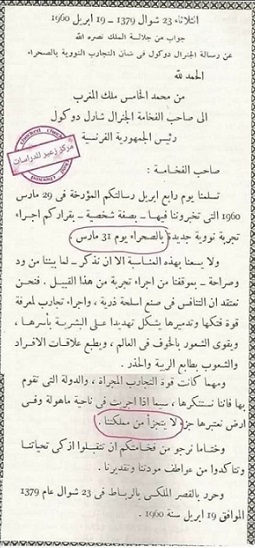 الثلاثاء 23 شوال 1379 - 19 ابريل 1960
جواب من جلالة الملك نصره الله
عن رسالة الجنرال دوكول في شان التجارب النووية بالصحراء
الحمد لله
من محمد الخامس ملك المغرب
الى صاحب الفخامة الجنرال شارل دوكول
رئيس الجمهورية الفرنسية
مركز زعير للدراسات
صاحب الفخامة :
تسلمنا يوم رابع ابريل رسالتكم المؤرخة في 29 مارس
1960 التي تخبروننا فيها - بصفة شخصية - بقراركم اجراء
تجربة نووية جديدة بالصحراء يوم 31 مارس .
ولا يسعنا بهذه المناسبة الا ان نذكر - لما بيننا من ود
وصراحة - بموقفنا من اجراء تجربة من هذا القبيل . فنحن
نعتقد ان التنافس في صنع اسلحة ذرية ، واجراء تجارب لمعرفة
قوة فتكها وتدميرها يشكل تهديدا على البشرية بأسرها ،
ويقوي الشعور بالخوف في العالم ، ويطبع علاقات الافراد
والشعوب بطابع الريبة والحذر .
ومهما كانت قوة التجارب المجراة ، والدولة التي تقوم
بها فاننا نستنكرها ، سيما اذا اجريت في ناحية ماهولة وفى
ارض نعتبرها جزءا لا يتجزأ من مملكتنا .
وختاما نرجو من فخامتكم ان تتقبلوا ازكى تحياتنا
وتتاكدوا من عواطف مودتنا وتقديرنا .
وحرر بالقصر الملكي بالرباط في 23 شوال عام 1379
الموافق 19 ابريل سنة 1960 .